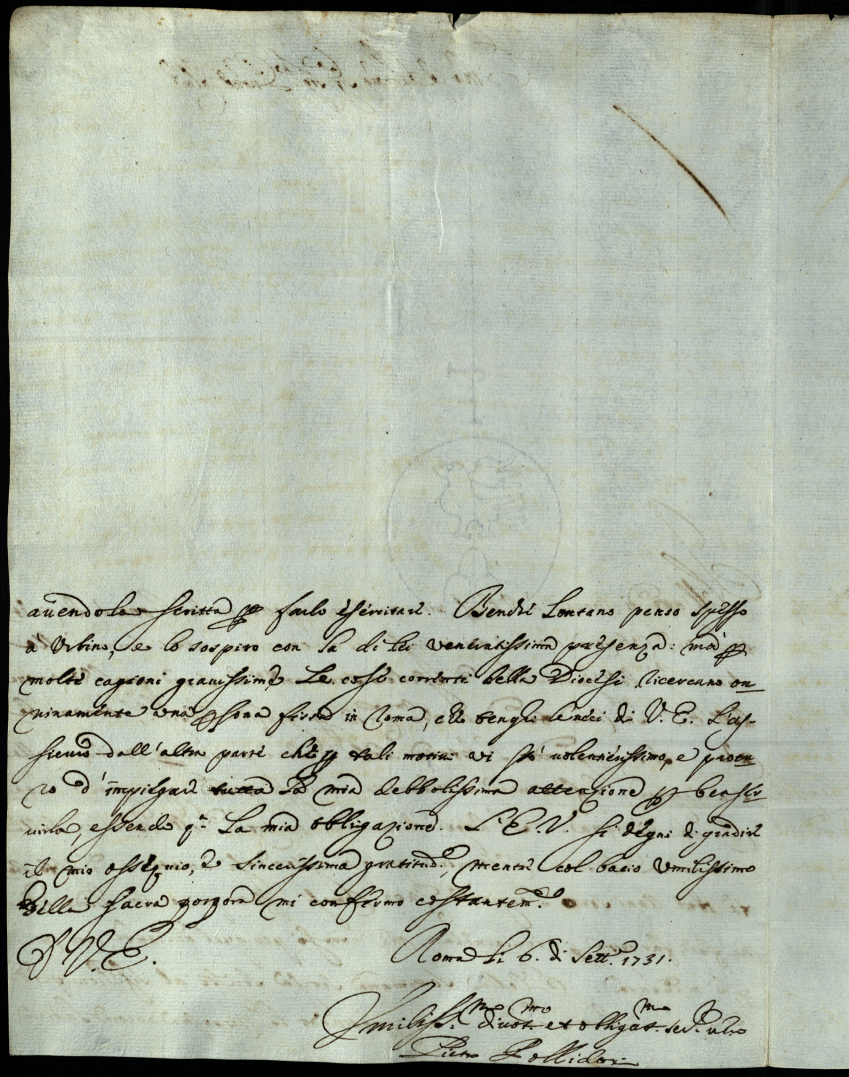 auendola scritta p farlo esercitare. Benche lontano penso spesso
a Urbino, e lo sospiro con la di lei veneratissima presenza: ma p
molte cagioni grauissime le cose correnti della Diocesi ricercano on-
ninamente una psona ferma in Roma, che tenghi le veci di V. E. L'as-
sicuro dall'altra parte che p tali motivi vi sto uolentierissimo, e procu-
ro d'impiegare tutta la mia debbolissima attenzione p ben ser-
uirla, essendo q.ta la mia obbligazione. L'E. V. si degni di gradire
il mio ossequio, e sincerissima gratitud.e, mentre col bacio vmilissimo
della sacra porpora mi confermo costantem.te
D V. E.
Roma li 6. di Sett.e 1731.
Vmiliss.mo diuot.mo et obligat.mo ser.re vero
Pietro Pollidori